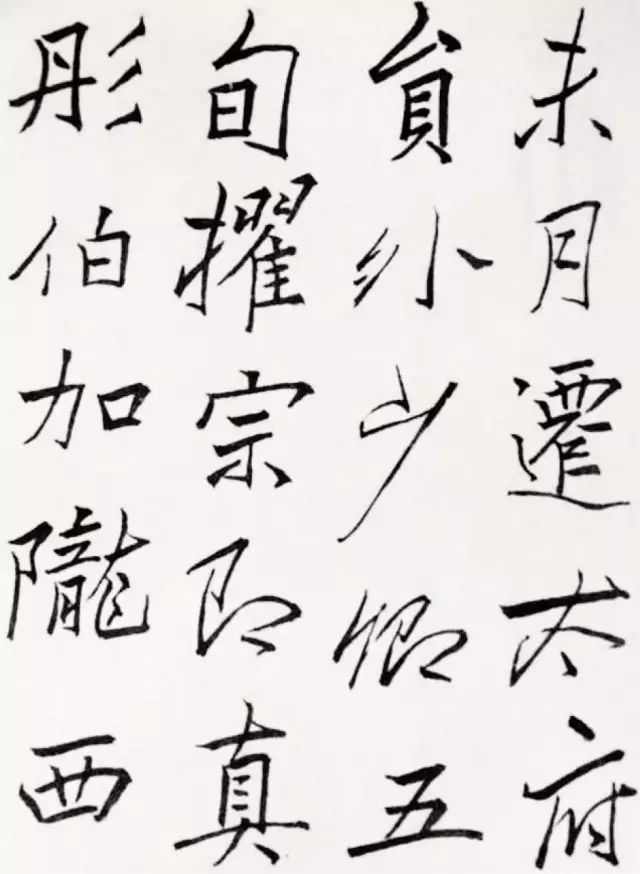 未月遷太府
員外少卿五
旬擢宗即真
彤伯加隴西